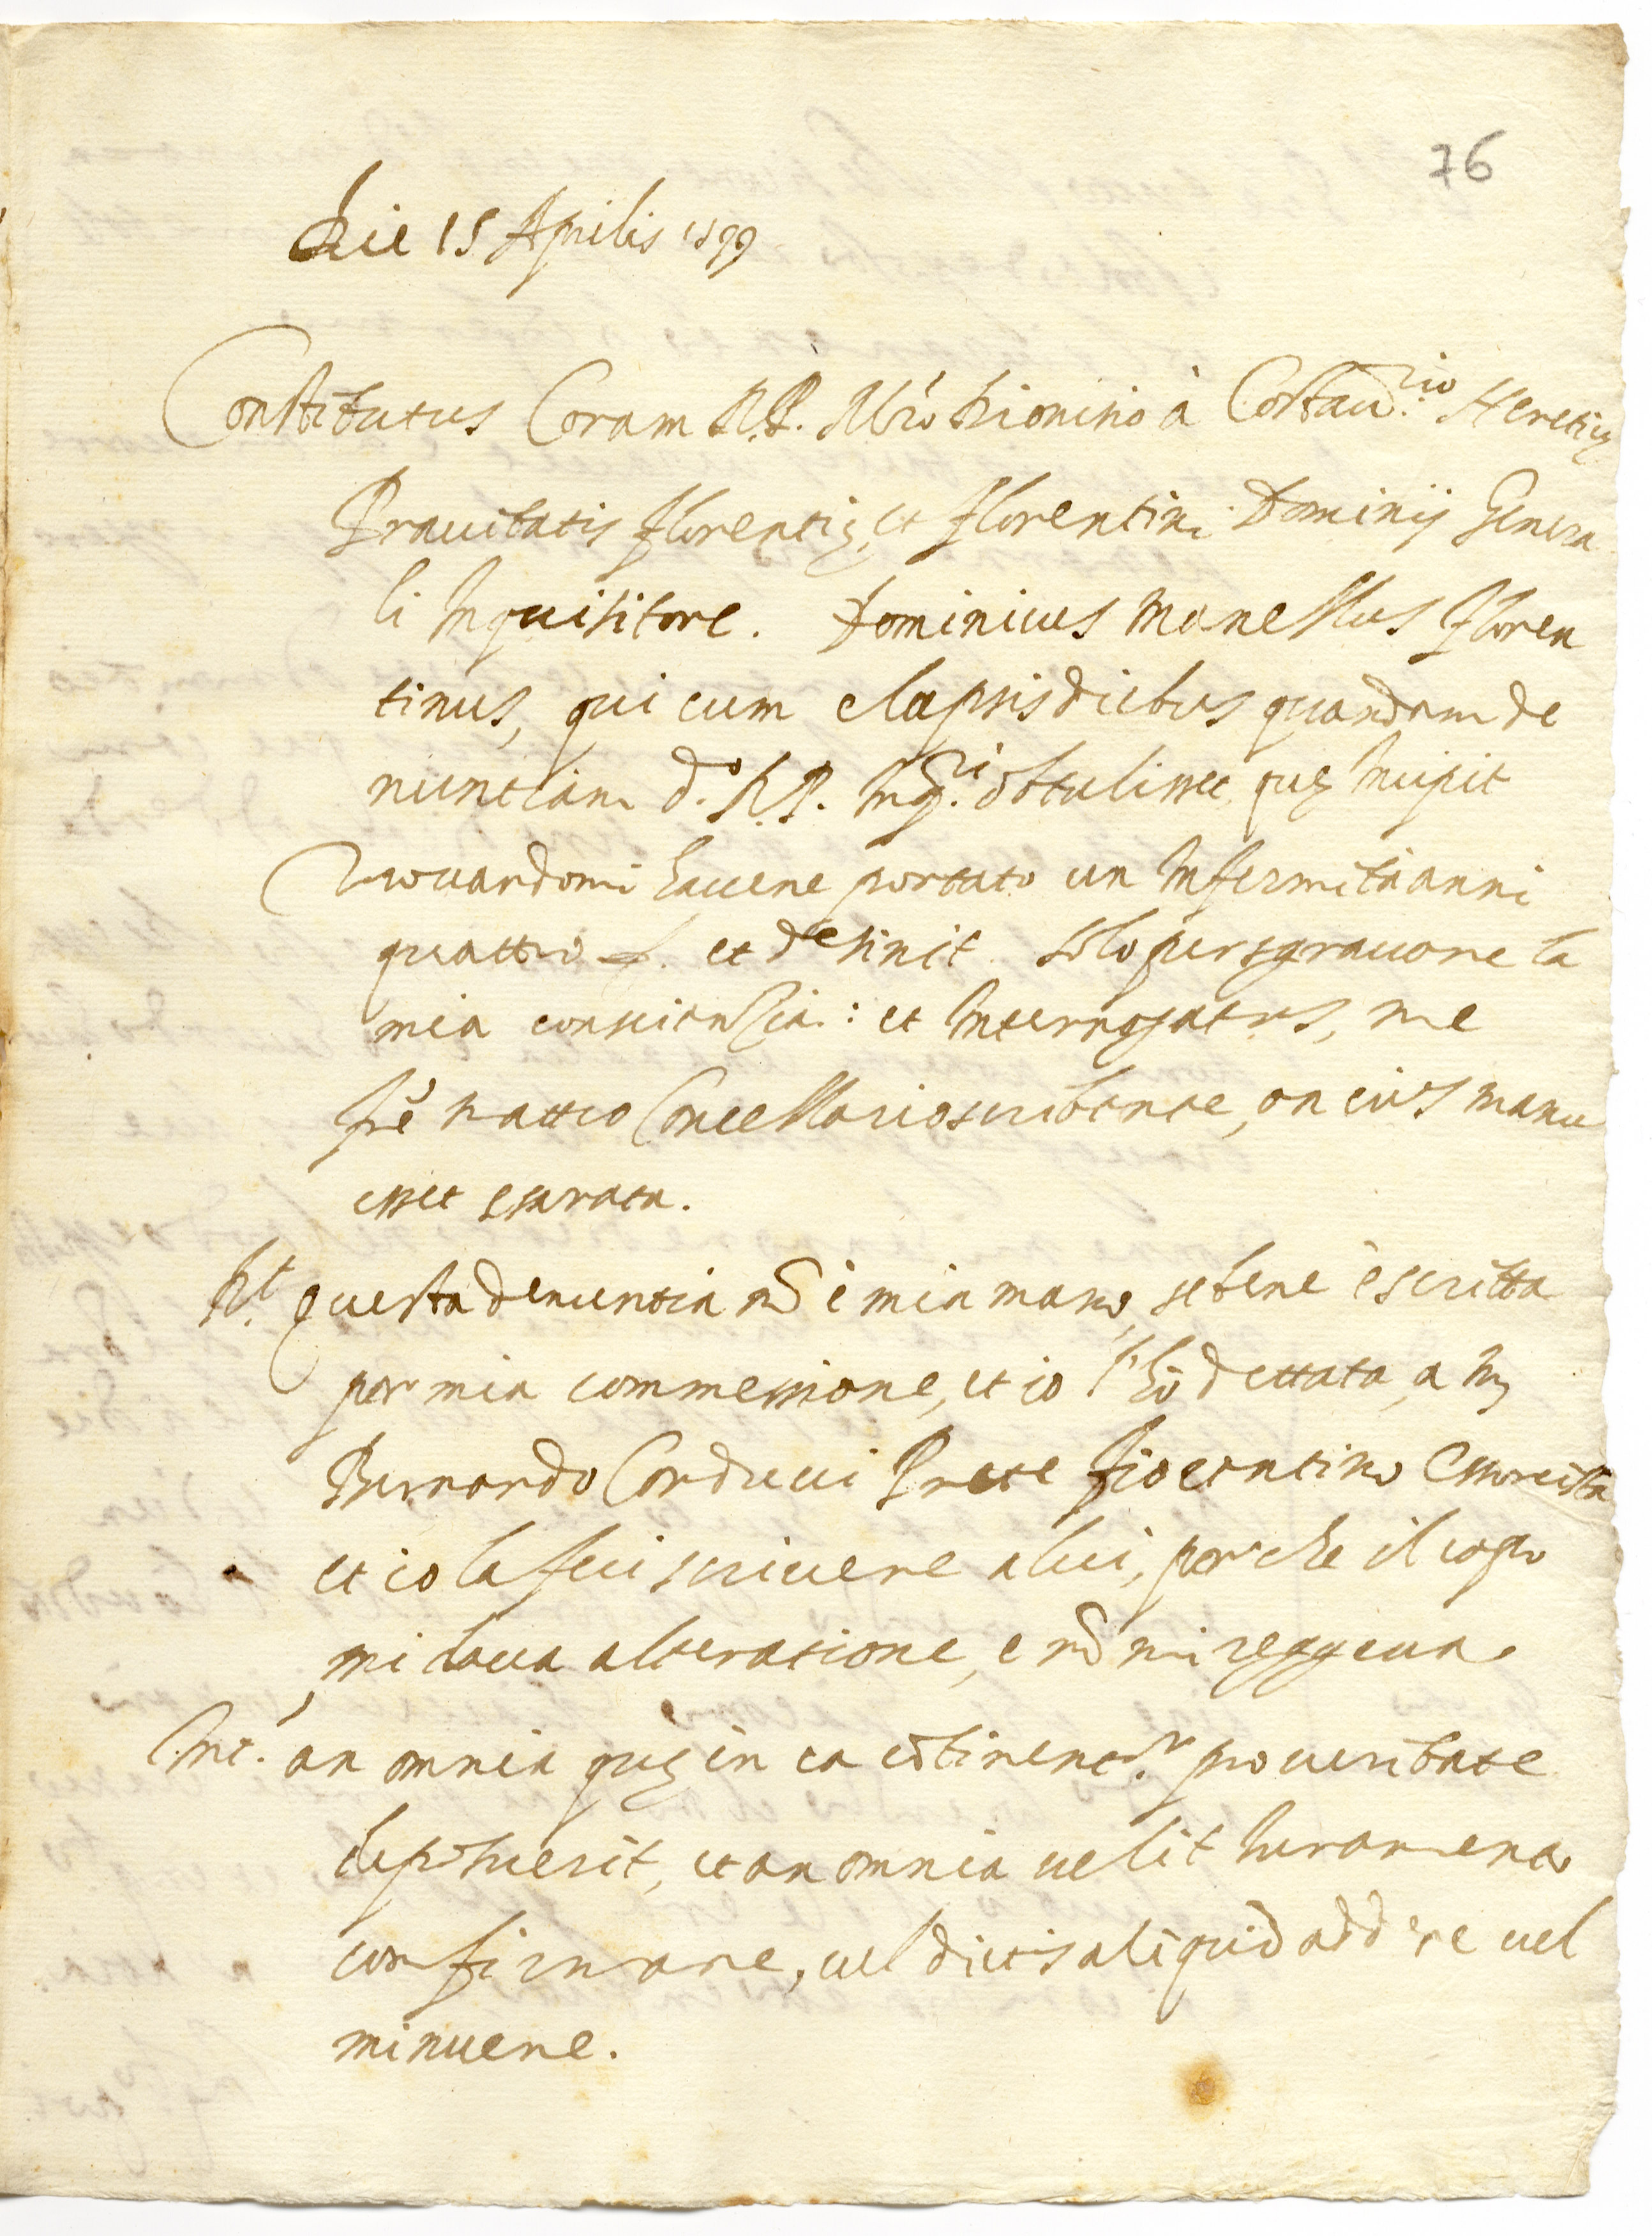 76
Die 15 Aprilis 1599
Constitutus Coram R.P. Mro Dionisio à Costac.rio Hereticę
Pravitatis Florentię, et Florentini Dominij Genera
li Inquisitore. Dominicus Manellus Floren
tinus, qui cum elapsis diebus quandam de
nuntiam d.o R.P. Inq.ri obtulisset, quę Incipit
Trovandomi havere portato un Infermità anni
quattro et desinit solo per sgravare la
mia conscientia: et Interrogatus, me
frê Cancellario scribente, an eius manu
esset exarata.
R.t questa denuntia nō è mia mano, sebene è scritta
per mia commessione, et io l'hò dettata, a
Bernardo Carducci Prete fiorentino Essorcista
et io la feci scrivere a lui, perche il capo
mi dava alteratione, e nō mi reggeva
Int. an omnia quę in ea cōtinent.r pro veritate
deposuerit, et an omnia velit Iuramento
confirmare, vel dictis aliquid addere vel
minuere.